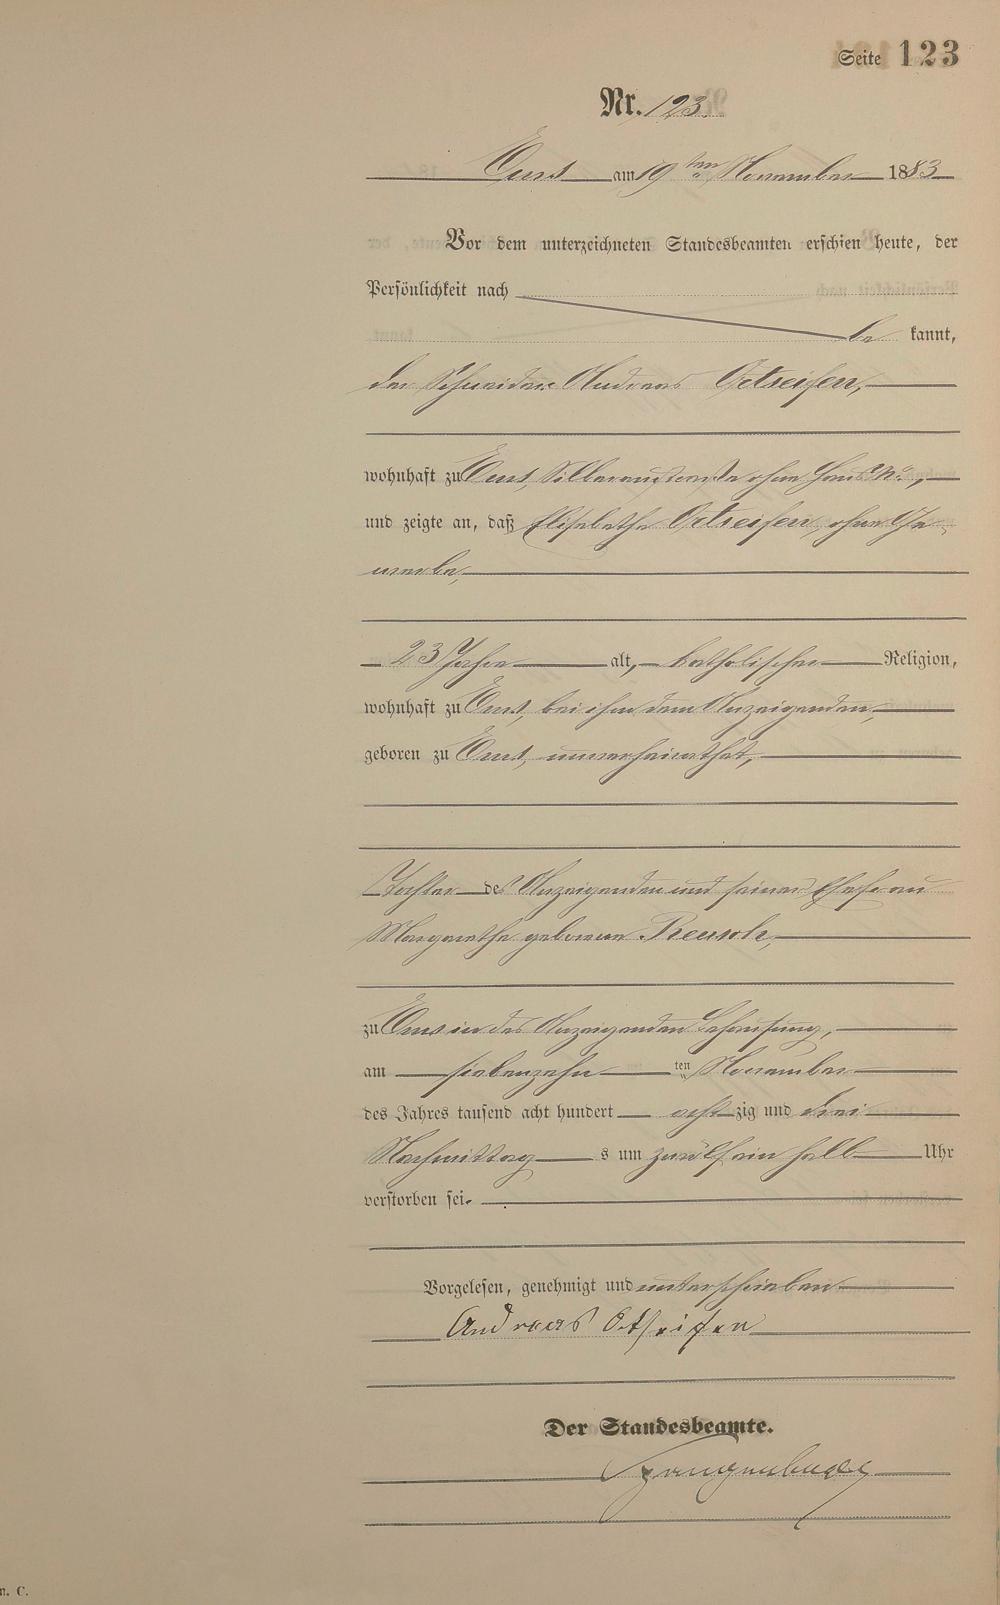 Seite 123
Nr. 123.
Ems am 19ten November 1883
Vor dem unterzeichneten Standesbeamten erschien heute, der
Persönlichkeit nach
be kannt,
der Schneider Andreas Ortseifen,
wohnhaft zu Ems, Silberaustraße ohne Haus No.,
und zeigte an, daß Elisabethe Ortseifen, ohne Ge-
werbe,
23 Jahre alt, katholischer Religion,
wohnhaft zu Ems, bei ihm dem Anzeigenden,
geboren zu Ems, unverheirathet,
Tochter des Anzeigenden und seiner Ehefrau
Margarethe geborene
zu Ems in des Anzeigenden Behausung,
am siebenzehn ten November
des Jahres tausend acht hundert acht zig und drei
Nachmittag s um zwölf ein halb Uhr
verstorben sei.
Vorgelesen, genehmigt und unterschrieben
Andreas Ortseifen
Der Standesbeamte.
n. C.